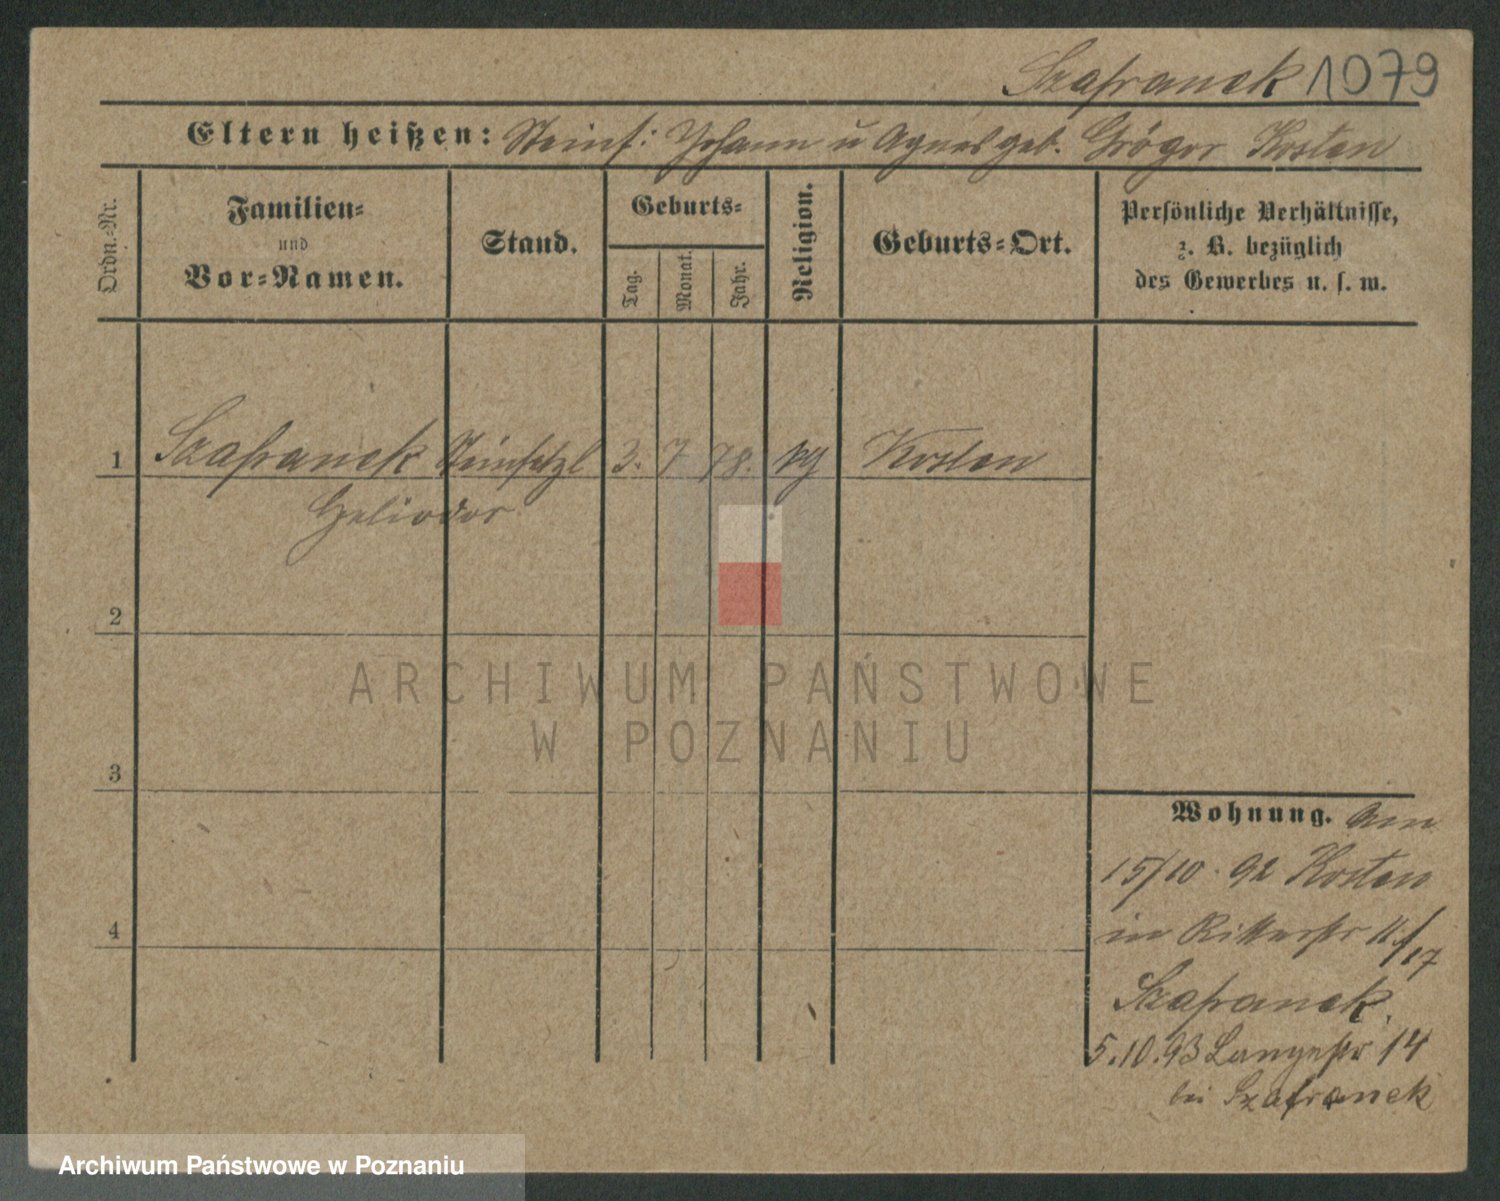 Szafranek 1079
Eltern heißen: Steins: Johann u Agnes geb. Gröger Kosten
Ordn.-Nr.
Familien-
und
Vor-Namen.
Stand.
Geburts-
Tag.
Monat.
Jahr.
Religion.
Geburts-Ort.
Persönliche Verhältnisse,
z. B. bezüglich
des Gewerbes u. s. w.
1 Szafranek Steinsetzl 3. 7 78. Kosten
Heliodor
2
ARCHIWUM PAŃSTWOWE
W POZNANIU
3
Wohnung. Am
15/10. 92 Kosten
in Ritterstr 11/17
4
Szafranek.
5.10.93 Langestr 14
bei Szafranek
Archiwum Państwowe w Poznaniu